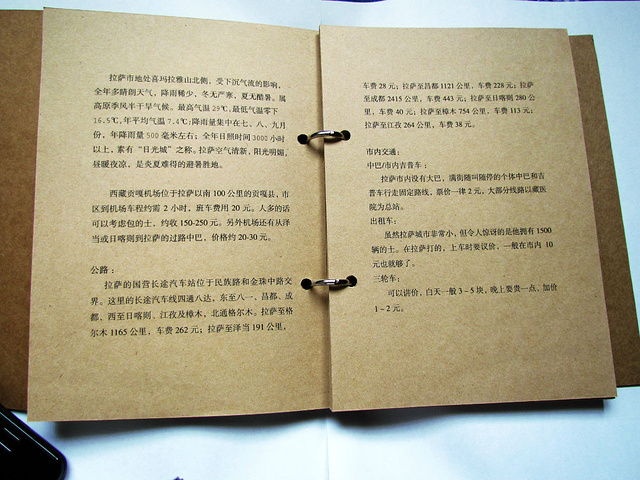 拉萨市地处喜玛拉雅山北侧，受下沉气流的影响，
全年多晴朗天气，降雨稀少，冬无严寒，夏无酷暑。属
高原季风半干旱气候。最高气温 29℃,最低气温零下
16.5℃,年平均气温 7.4℃;降雨量集中在七、八、九月
份，年降雨量 500 毫米左右；全年日照时间 3000 小时
以上，素有“日光城”之称。拉萨空气清新，阳光明媚，
昼暖夜凉，是炎夏难得的避暑胜地。
西藏贡嘎机场位于拉萨以南 100 公里的贡嘎县，市
区到机场车程约需 2 小时，班车费用 20 元。人多的话
可以考虑包的士，约收 150-250 元。另外机场还有从泽
当或日喀则到拉萨的过路中巴，价格约 20-30 元。
公路：
拉萨的国营长途汽车站位于民族路和金珠中路交
界。这里的长途汽车线四通八达，东至八一、昌都、成
都，西至日喀则、江孜及樟木，北通格尔木。拉萨至格
尔木 1165 公里，车费 262 元；拉萨至泽当 191 公里，
车费 28 元；拉萨至昌都 1121 公里，车费 228 元；拉萨
至成都 2415 公里，车费 443 元；拉萨至日喀则 280 公
里，车费 40 元；拉萨至樟木 754 公里，车费 113 元；
拉萨至江孜 264 公里，车费 38 元。
市内交通：
中巴/市内吉普车：
拉萨市内没有大巴，满街随叫随停的个体中巴和吉
普车行走固定路线，票价一律 2 元，大部分线路以藏医
院为总站。
出租车：
虽然拉萨城市非常小，但令人惊讶的是他拥有 1500
辆的士。在拉萨打的，上车时要议价，一般在市内 10
元也就够了。
三轮车：
可以讲价，白天一般 3－5 块，晚上要贵一点，加价
1－2 元。